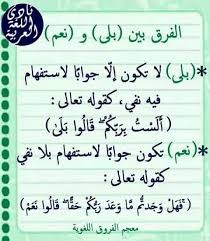 نادي
اللغة
العربية
الفرق بين (بلى) و (نعم)
*(بلى) لا تكون إلّا جوابًا لاستفهام
فيه نفي، كقوله تعالى:
(أَلَسْتُ بِرَبِّكُمْ ۖ قَالُوا بَلَىٰ)
*(نعم) تكون جوابًا لاستفهام بلا نفي
كقوله تعالى:
(فَهَلْ وَجَدتُّم مَّا وَعَدَ رَبُّكُمْ حَقًّا ۖ قَالُوا نَعَمْ)
معجم الفروق اللغوية